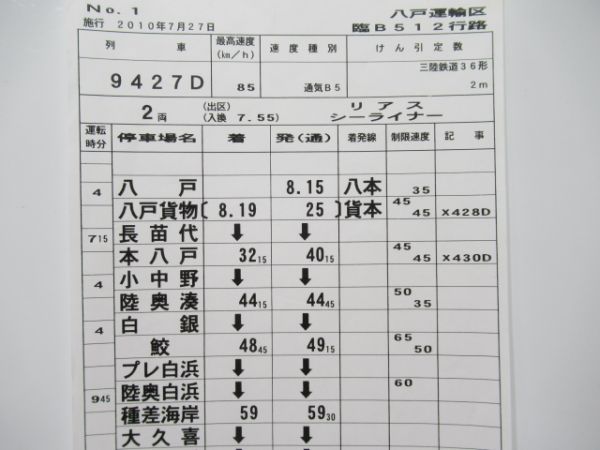 No. 1
八戸運輸区
施行 2010年7月27日
臨B512行路
列車 最高速度(km/h) 速度種別 けん引定数
9427D 85 通気B5 三陸鉄道36形 2m
2両 (出区) (入換 7.55) リアス シーライナー
運転時分 停車場名 着 発(通) 着発線 制限速度 記事
八戸 8.15 八本 35
4
八戸貨物 〔 8.19 25 〕 貨本 45 45 X428D
長苗代 ⬇ ⬇
7 15
本八戸 32 15 40 15 45 45 X430D
小中野 ⬇ ⬇
4
陸奥湊 44 15 44 45 50 35
白銀 ⬇ ⬇
4
鮫 48 45 49 15 65 50
プレ白浜 ⬇ ⬇
陸奥白浜 ⬇ ⬇ 60
9 45
種差海岸 59 59 30
大久喜 ⬇ ⬇